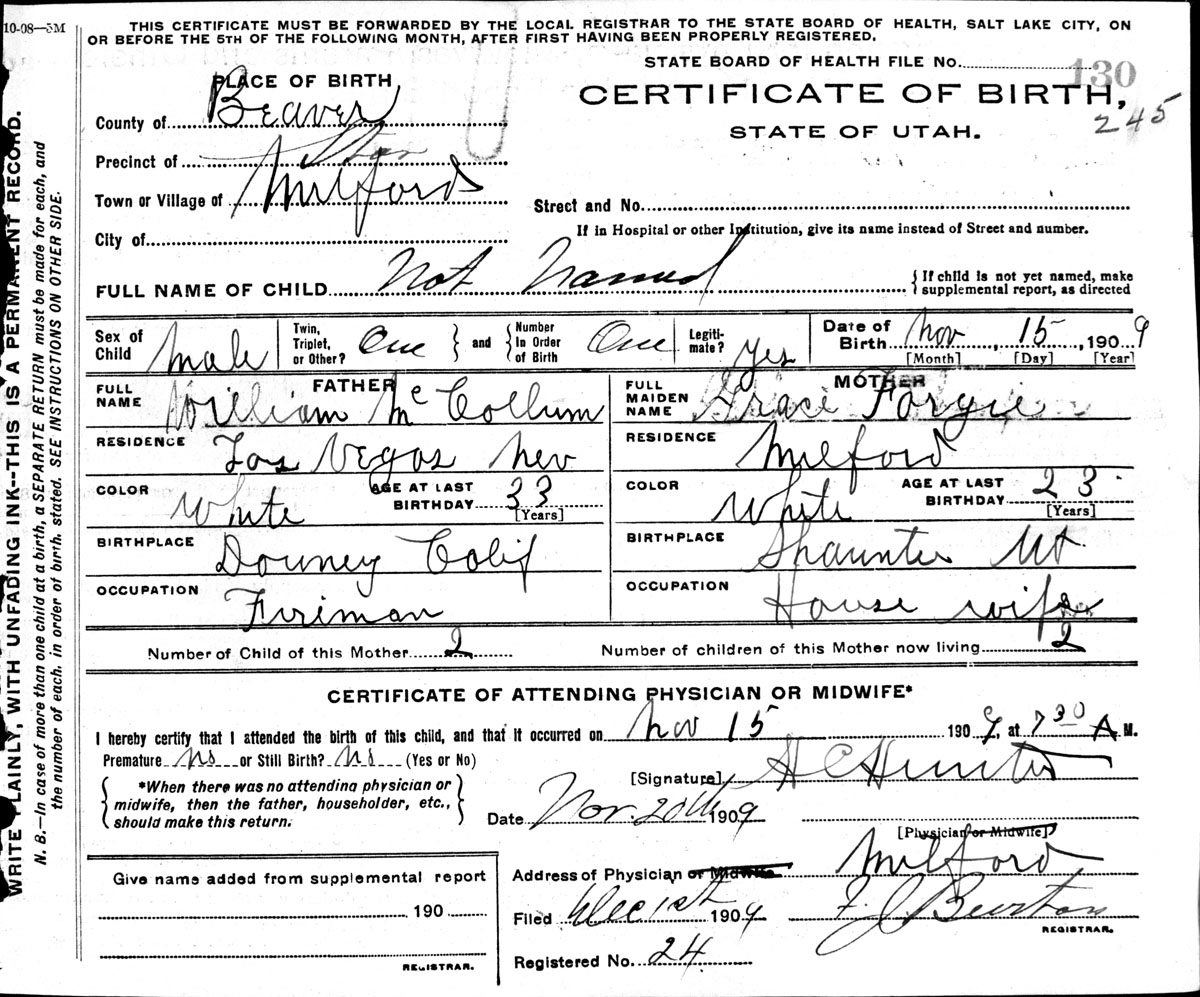 10-08—5M
THIS CERTIFICATE MUST BE FORWARDED BY THE LOCAL REGISTRAR TO THE STATE BOARD OF HEALTH, SALT LAKE CITY, ON
OR BEFORE THE 5TH OF THE FOLLOWING MONTH, AFTER FIRST HAVING BEEN PROPERLY REGISTERED.
STATE BOARD OF HEALTH FILE No. 130
PLACE OF BIRTH
CERTIFICATE OF BIRTH,
245
STATE OF UTAH.
County of Beaver
Precinct of
Town or Village of Milford
Street and No.
City of
If in Hospital or other Institution, give its name instead of Street and number.
FULL NAME OF CHILD Not Named
{ If child is not yet named, make
supplemental report, as directed
Sex of Child Male
Twin, Triplet, or Other? One } and { Number In Order of Birth One
Legiti-mate? Yes
Date of Birth Nov, 15, 1909
[Month] [Day] [Year]
FATHER
FULL NAME William McCollum
MOTHER
FULL MAIDEN NAME Grace Forgie
RESIDENCE Las Vegas Nev
RESIDENCE Milford
COLOR White AGE AT LAST BIRTHDAY 33 [Years]
COLOR White AGE AT LAST BIRTHDAY 23 [Years]
BIRTHPLACE Downey Calif
BIRTHPLACE Shauntie Ut
OCCUPATION Firiman
OCCUPATION House wife
Number of Child of this Mother 2
Number of children of this Mother now living 2
CERTIFICATE OF ATTENDING PHYSICIAN OR MIDWIFE*
I hereby certify that I attended the birth of this child, and that it occurred on Nov 15 1909, at 7 30 A M.
Premature No or Still Birth? No (Yes or No)
[Signature] H C Hunter
{ *When there was no attending physician or
midwife, then the father, householder, etc.,
should make this return. }
Date Nov. 20th 1909
[Physician or Midwife]
Address of Physician or Midwife Milford
Filed Dec 1st 1909 F J Burton
REGISTRAR.
Registered No. 24
Give name added from supplemental report
190
REGISTRAR.
WRITE PLAINLY, WITH UNFADING INK--THIS IS A PERMANENT RECORD.
N. B.—In case of more than one child at a birth, a SEPARATE RETURN must be made for each, and
the number of each, in order of birth, stated. SEE INSTRUCTIONS ON OTHER SIDE.